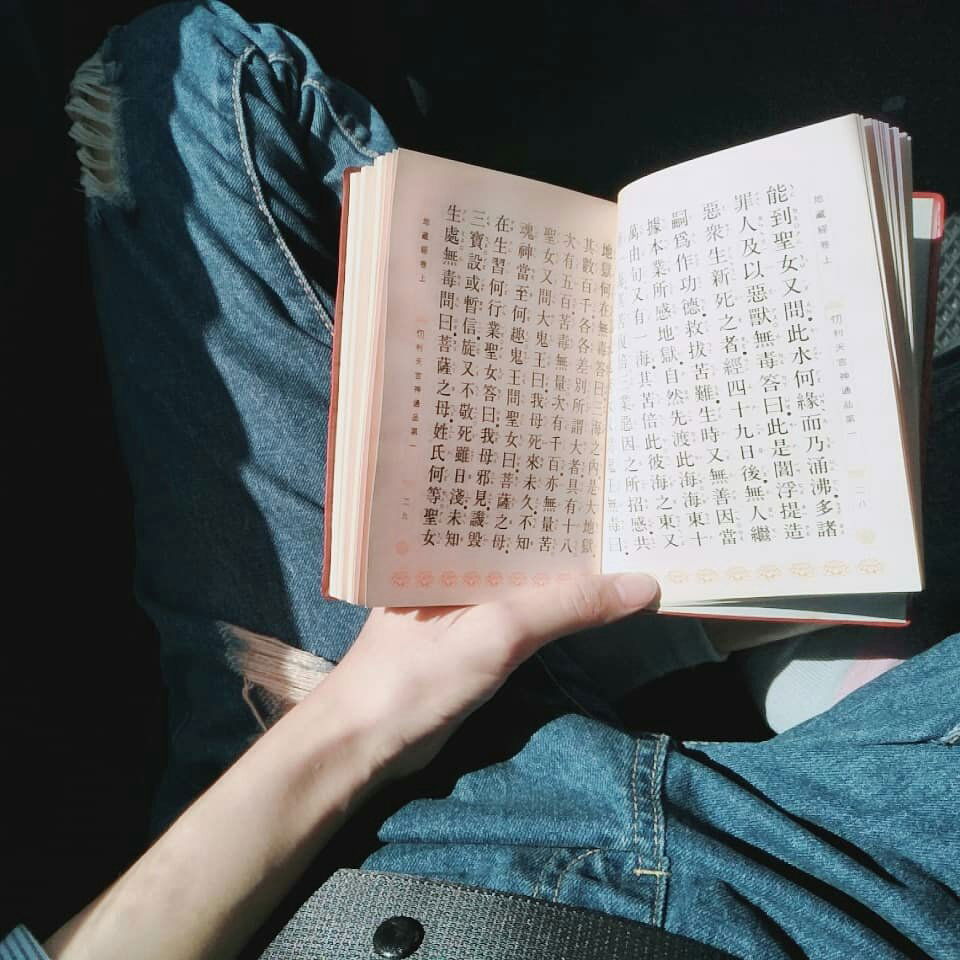 地藏經卷上　忉利天宮神通品第一　二八
能到聖女又問。此水何緣。而乃涌沸。多諸
罪人及以惡獸。無毒答曰。此是閻浮提造
惡衆生。新死之者。經四十九日後。無人繼
嗣。爲作功德。救拔苦難。生時又無善因。當
據本業所感地獄。自然先渡此海。海東十
萬由旬。又有一海。其苦倍此。彼海之東。又
苦復倍。三業惡因之所招感。共
無毒曰。
地獄何在。無毒答曰。三海之內。是大地獄
其數百千。各各差別。所謂大者。具有十八
次有五百。苦毒無量。次有千百。亦無量苦
聖女又問大鬼王曰。我母死來未久。不知
魂神當至何趣。鬼王問聖女曰。菩薩之母。
在生習何行業。聖女答曰。我母邪見。譏毀
三寶。設或暫信。旋又不敬。死雖日淺。未知
生處。無毒問曰。菩薩之母。姓氏何等。聖女
地藏經卷上　忉利天宮神通品第一　二九